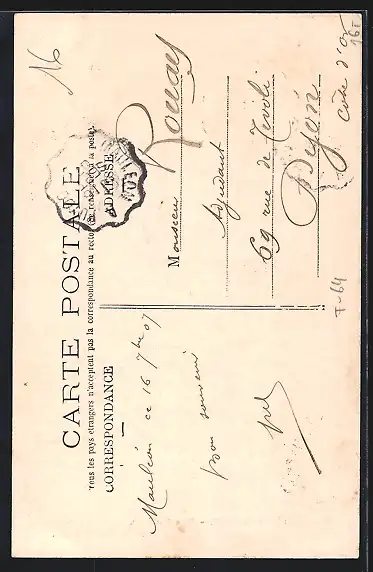 CARTE POSTALE
Tous les pays etrangers n'acceptent pas la correspondance au recto (se renseigner à la poste).
CORRESPONDANCE
ADRESSE
Mauléon ce 16 7bre 07
bon souvenir
Monsieur Rouay
Adjudant
69 rue de Tivoli
Dijon
Côte d'Or
16
16-
F-64